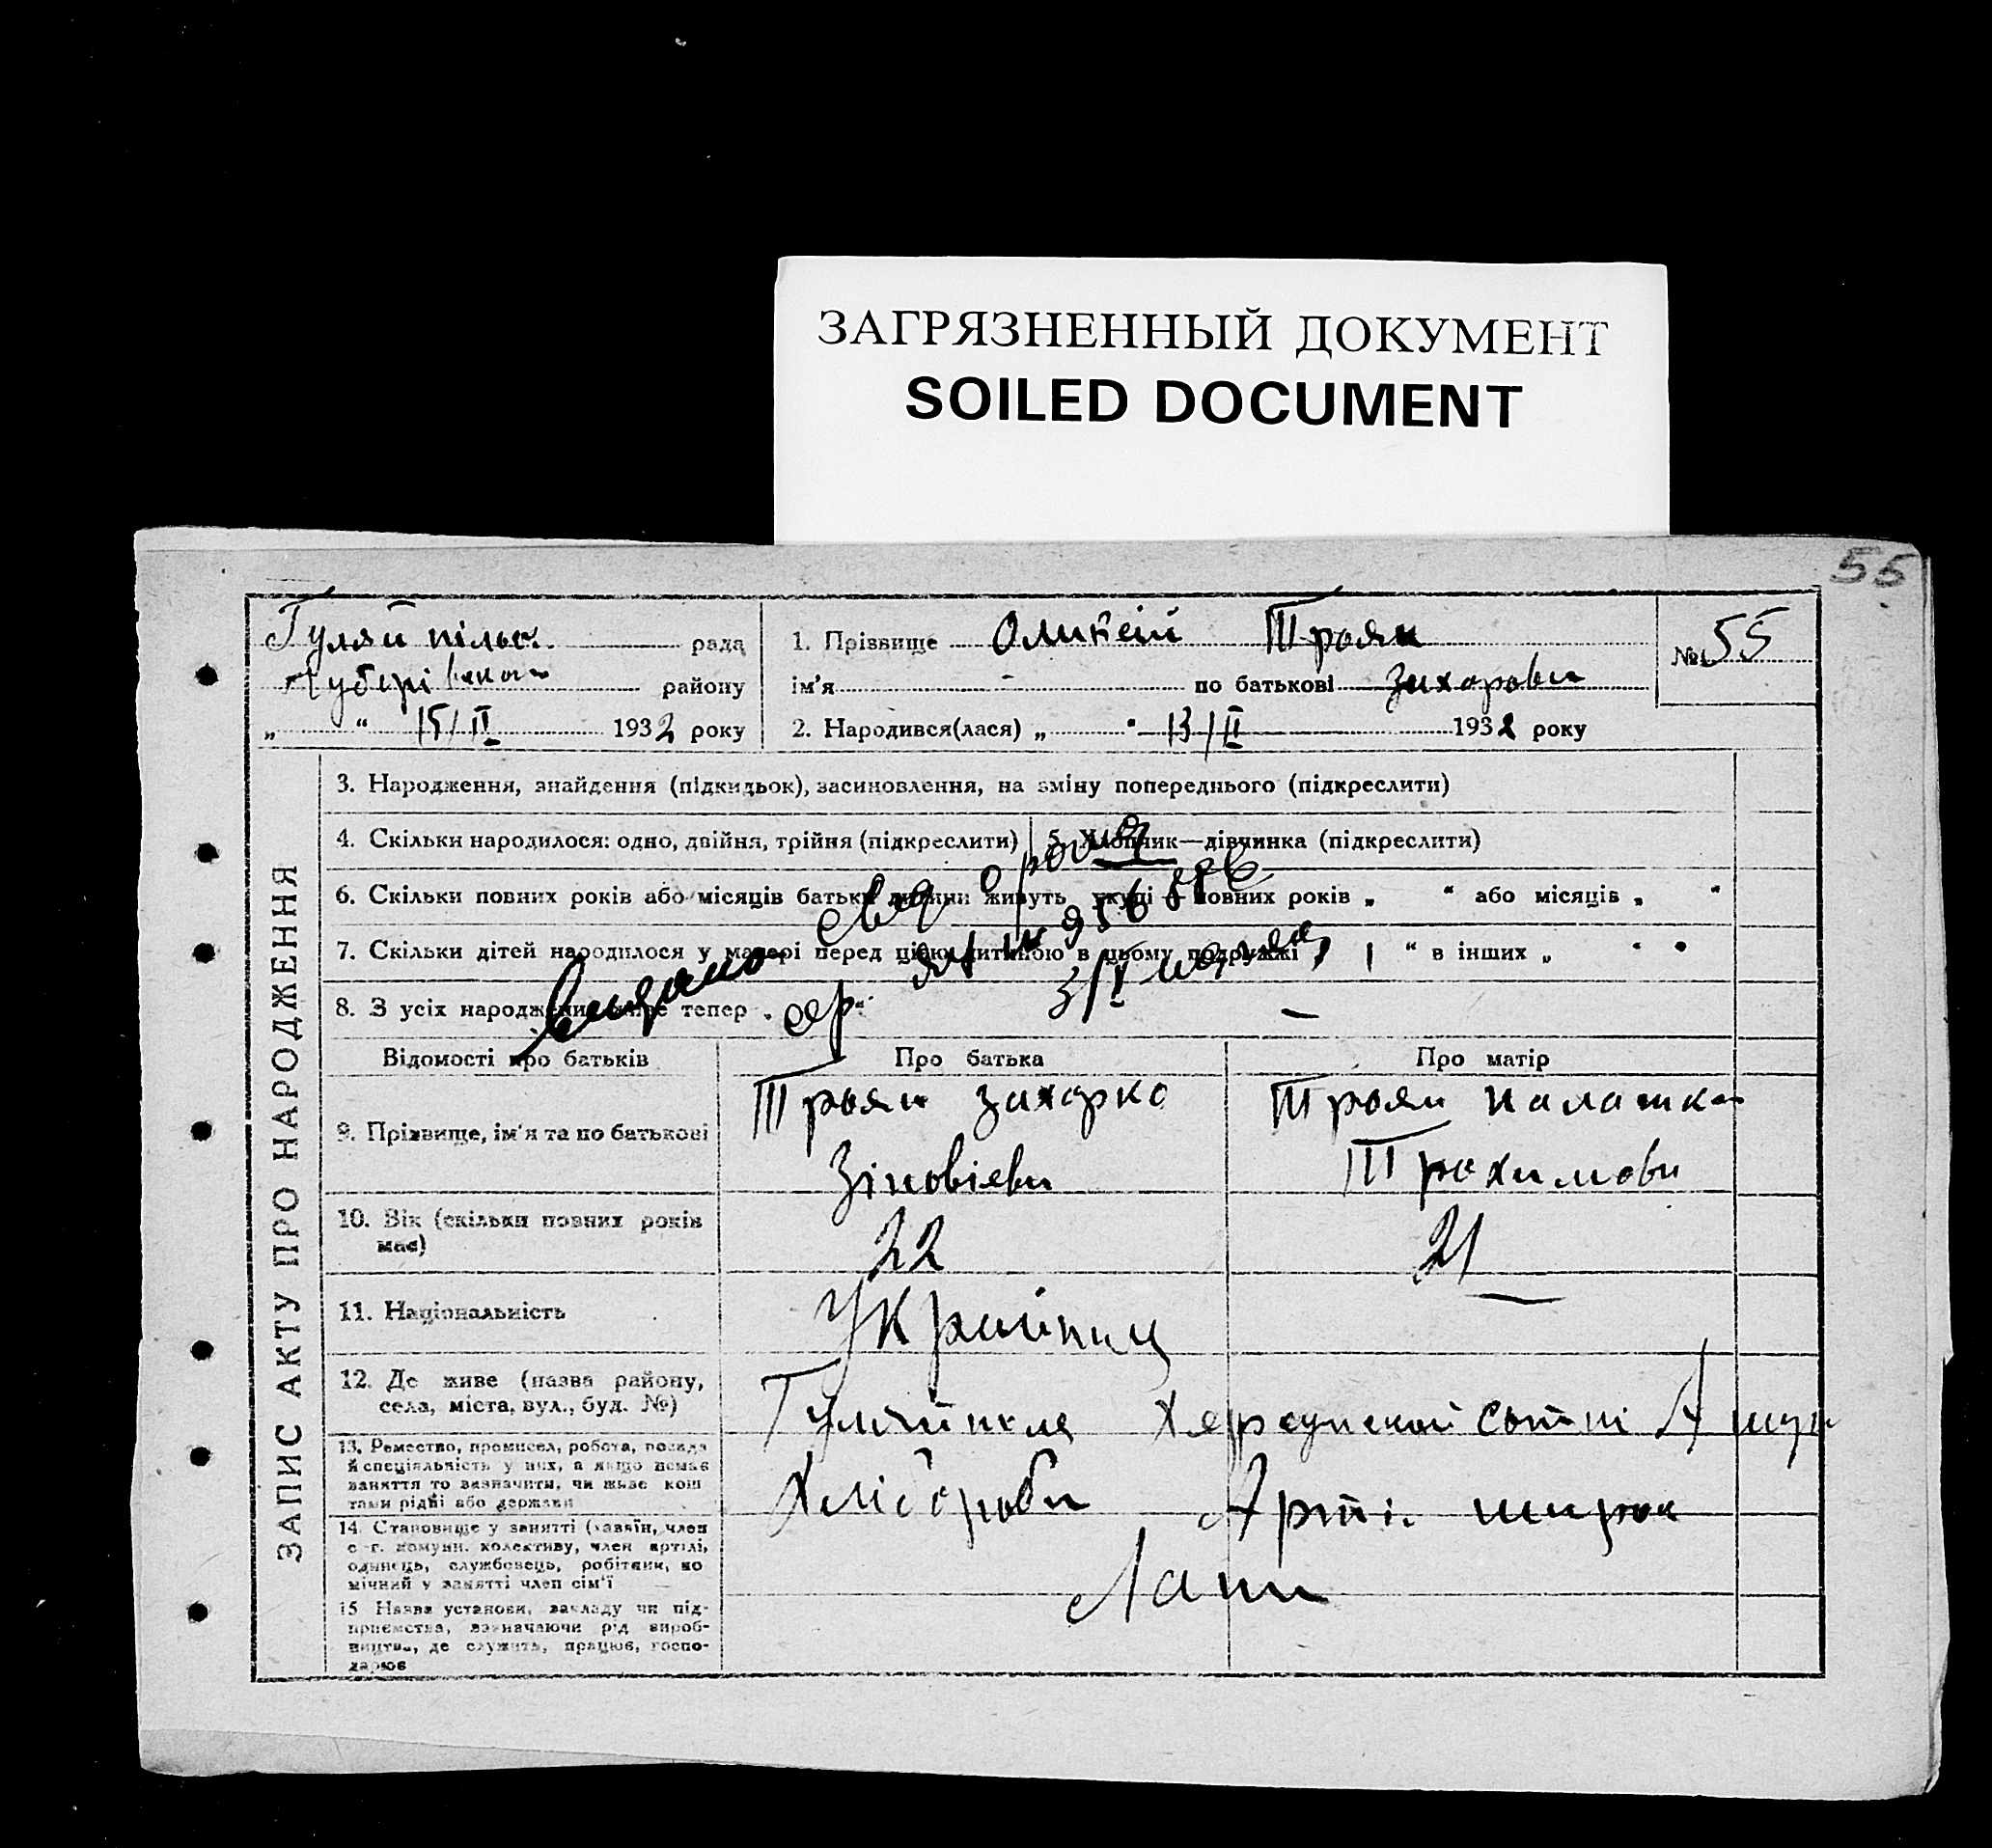 ЗАГРЯЗНЕННЫЙ ДОКУМЕНТ
SOILED DOCUMENT
55
Гуляй пільс. рада
району
„ “ 15/II 1932 року
1. Прізвище Олипей Троян
ім'я - по батькові Захорови
2. Народився(лася) „ “ 13/II 1932 року
№ 55
ЗАПИС АКТУ ПРО НАРОДЖЕННЯ
3. Народження, знайдення (підкидьок), засиновлення, на зміну попереднього (підкреслити)
4. Скільки народилося: одно, двійня, трійня (підкреслити)
5. Хлопчик—дівчинка (підкреслити)
6. Скільки повних років або місяців батьки дитини живуть укупі — повних років „ “ або місяців „ “
7. Скільки дітей народилося у матері перед цією дитиною в цьому подружжі „ 1 “ в інших „ “
8. З усіх народжених живе тепер „ “ —
Видано
Відомості про батьків
Про батька
Про матір
9. Прізвище, ім'я та по батькові
Троян Захарко
Зіновієви
Троян Палашка
Трохимови
10. Вік (скільки повних років
має)
22
21
11. Національність
Українц
12. Де живе (назва району,
села, міста, вул., буд. №)
Гуляйполя
сотні
13. Ремество, промисел, робота, посада
й спеціяльність у них, а якщо немає
заняття то визначити, чи живе кош
тами рідні або держави
Хлібороби
14. Становище у занятті (хазяїн, член
с.-г. комуни. колективу, член артілі,
одинець, службовець, робітник, по
мічний у занятті член сім'ї
Арті. широк
Лани
15 Назва установи, закладу чи під-
приємства, визначаючи рід вироб-
ництва, де служить, працює, госпо-
дарює